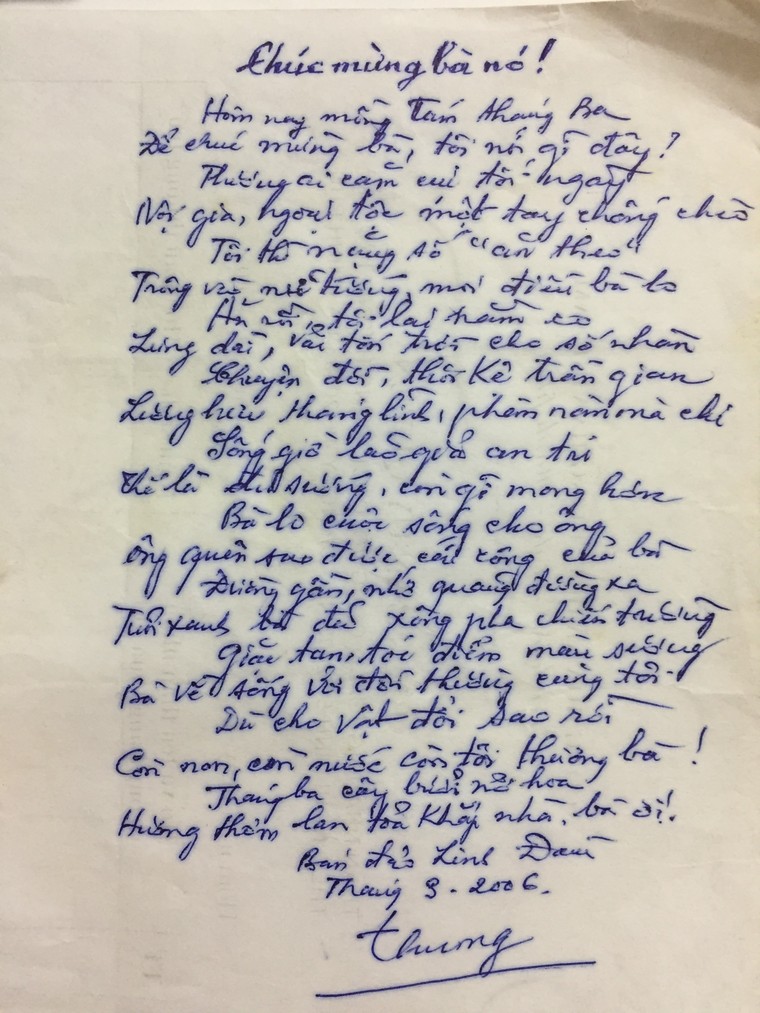 Chúc mừng bà nó!
Hôm nay mồng Tám tháng Ba
Để chúc mừng bà, tôi nói gì đây?
Thương ai cắm cúi tối ngày
Nội gia, ngoại tộc một tay chống chèo
Tôi thì nặng số "ăn theo"
Trông vào nữ tướng, mọi điều bà lo
Ăn rồi, tôi lại nằm co
Lưng dài, vải tốn trời cho số nhàn
Chuyện đời, thôi kệ trần gian
Lương hưu tháng lĩnh, phàn nàn mà chi
Sống già lão giả an tri
Thế là đủ sướng, còn gì mong hơn
Bà lo cuộc sống cho ông
Ông quên sao được cái công của bà
Đường gần, nhớ quãng đường xa
Tuổi xanh bà đã xông pha chiến trường
Giặc tan, tóc điểm màu sương
Bà về sống với đời thường cùng tôi
Dù cho vật đổi sao rời
Còn non, còn nước còn tôi thương bà!
Tháng ba cây bưởi nở hoa
Hương thơm lan tỏa khắp nhà, bà ơi!
Bán đảo Linh Đàm
Tháng 3-2006.
Thương